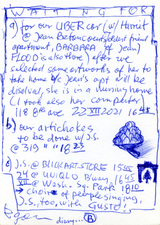 WAITING FOR
a) for our UBER car (w/ Hermit
@ Jean Betancourt's friend
apartment, BARBARA (of Jean)
FLOOD is also there) after we
collected some artworks of her to
take home & Jean's apt will be
dissolved, she is in a nursing home
(I took also her computer
118 8th ave 22 XII 2021 1645
b) our artichokes
to be done w/ J.S.
@ 319 1623
c) J.S. @ BLICK ART STORE 1545
24 @ WORLD
Wash. Sq. Park 1810
of people singing
J.S., too, with GUSTE!
diary...
B